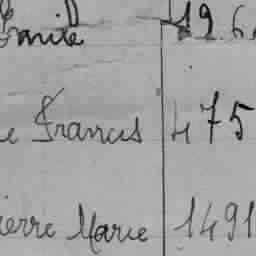 Emile 496
e Francis 475
ierre Marie 1491